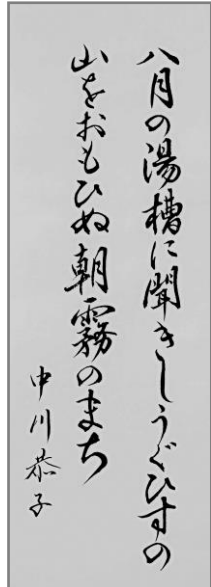 八月の湯槽に聞きしうぐひすの
山をおもひぬ朝霧のまち
中川恭子